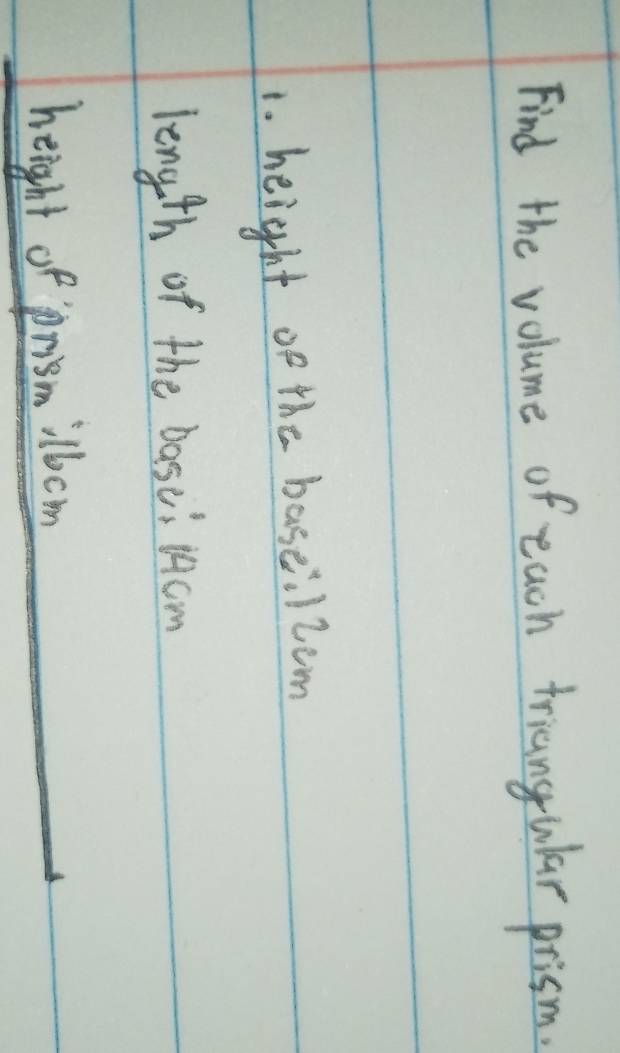 Find the volume of each triangular prism.
1. height of the base: 12cm
length of the base: 14cm
height of prism: 16cm